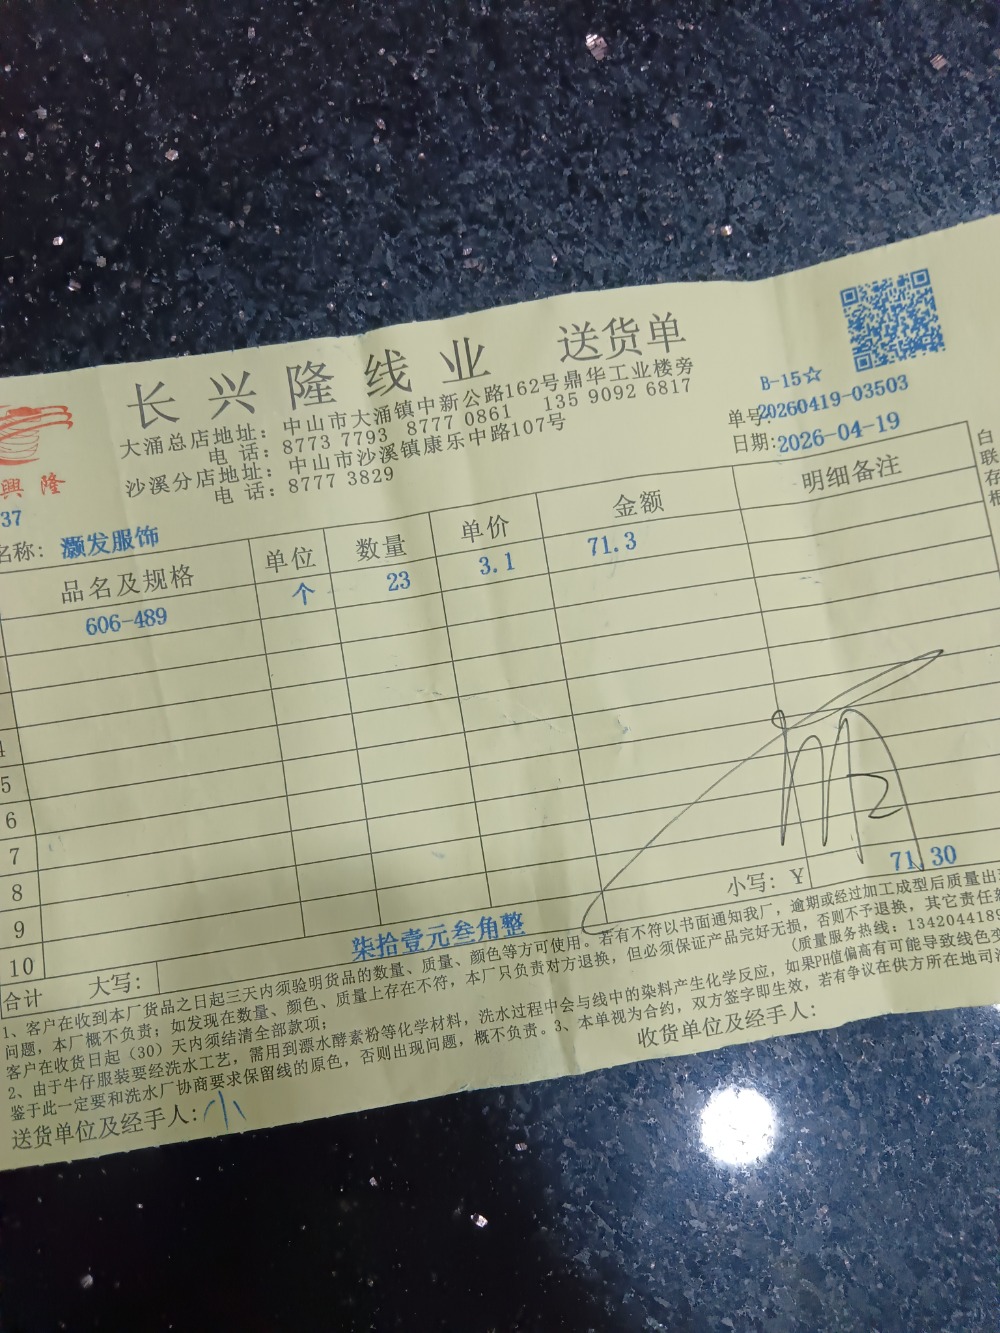 长兴隆线业 送货单
大涌总店地址：中山市大涌镇中新公路162号鼎华工业楼旁
电话：8773 7793 8777 0861 135 9092 6817
沙溪分店地址：中山市沙溪镇康乐中路107号
电话：8777 3829
B-15☆
单号:20260419-03503
日期:2026-04-19
興隆
37
名称: 灏发服饰
品名及规格 单位 数量 单价 金额 明细备注
606-489 个 23 3.1 71.3
4
5
6
7
8
9
10
合计 大写: 柒拾壹元叁角整 小写: ¥ 71.30
1、客户在收到本厂货品之日起三天内须验明货品的数量、质量、颜色等方可使用。若有不符以书面通知我厂，逾期或经过加工成型后质量出现
问题，本厂概不负责；如发现在数量、颜色、质量上存在不符，本厂只负责对方退换，但必须保证产品完好无损，否则不予退换，其它责任
客户在收货日起（30）天内须结清全部款项； (质量服务热线: 134204418
2、由于牛仔服装要经洗水工艺，需用到漂水酵素粉等化学材料，洗水过程中会与线中的染料产生化学反应，如果PH值偏高有可能导致线色变
鉴于此一定要和洗水厂协商要求保留线的原色，否则出现问题，概不负责。3、本单视为合约，双方签字即生效，若有争议在供方所在地司
送货单位及经手人: 小 收货单位及经手人:
白
联
存
根